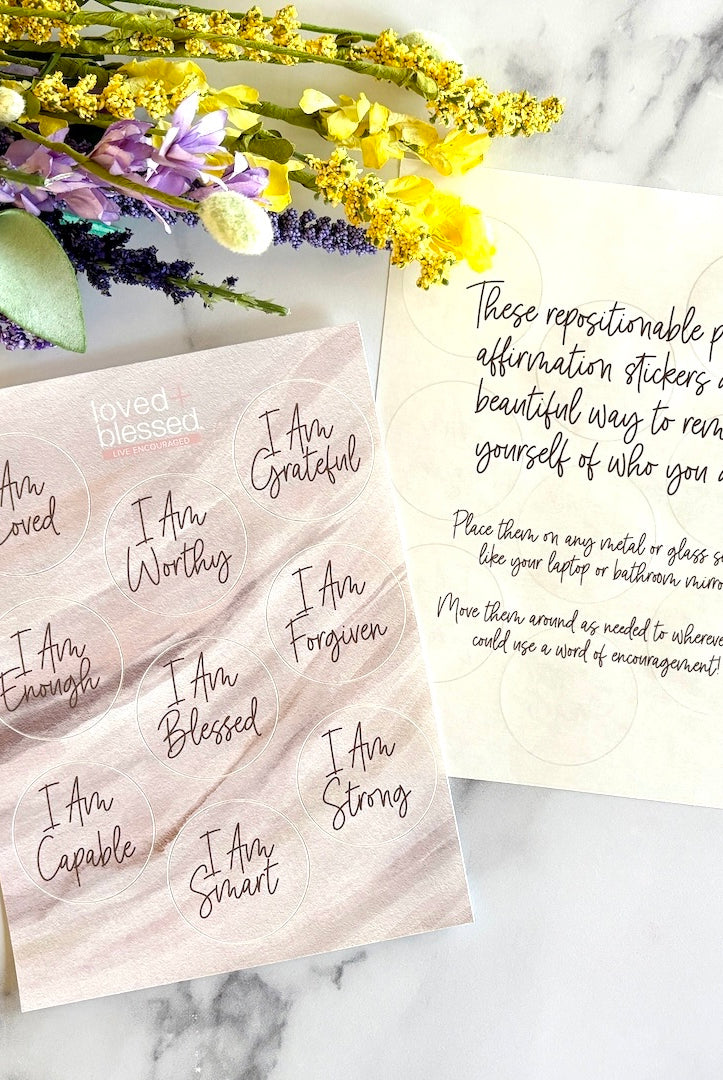 loved+
blessed
LIVE ENCOURAGED
I Am
Grateful
Am
Loved
I Am
Worthy
I Am
Forgiven
I Am
Enough
I Am
Blessed
I Am
Strong
I Am
Capable
I Am
Smart
These repositionable p
affirmation stickers a
beautiful way to rem
yourself of who you a
Place them on any metal or glass s
like your laptop or bathroom mirro
Move them around as needed to wherever
could use a word of encouragement!